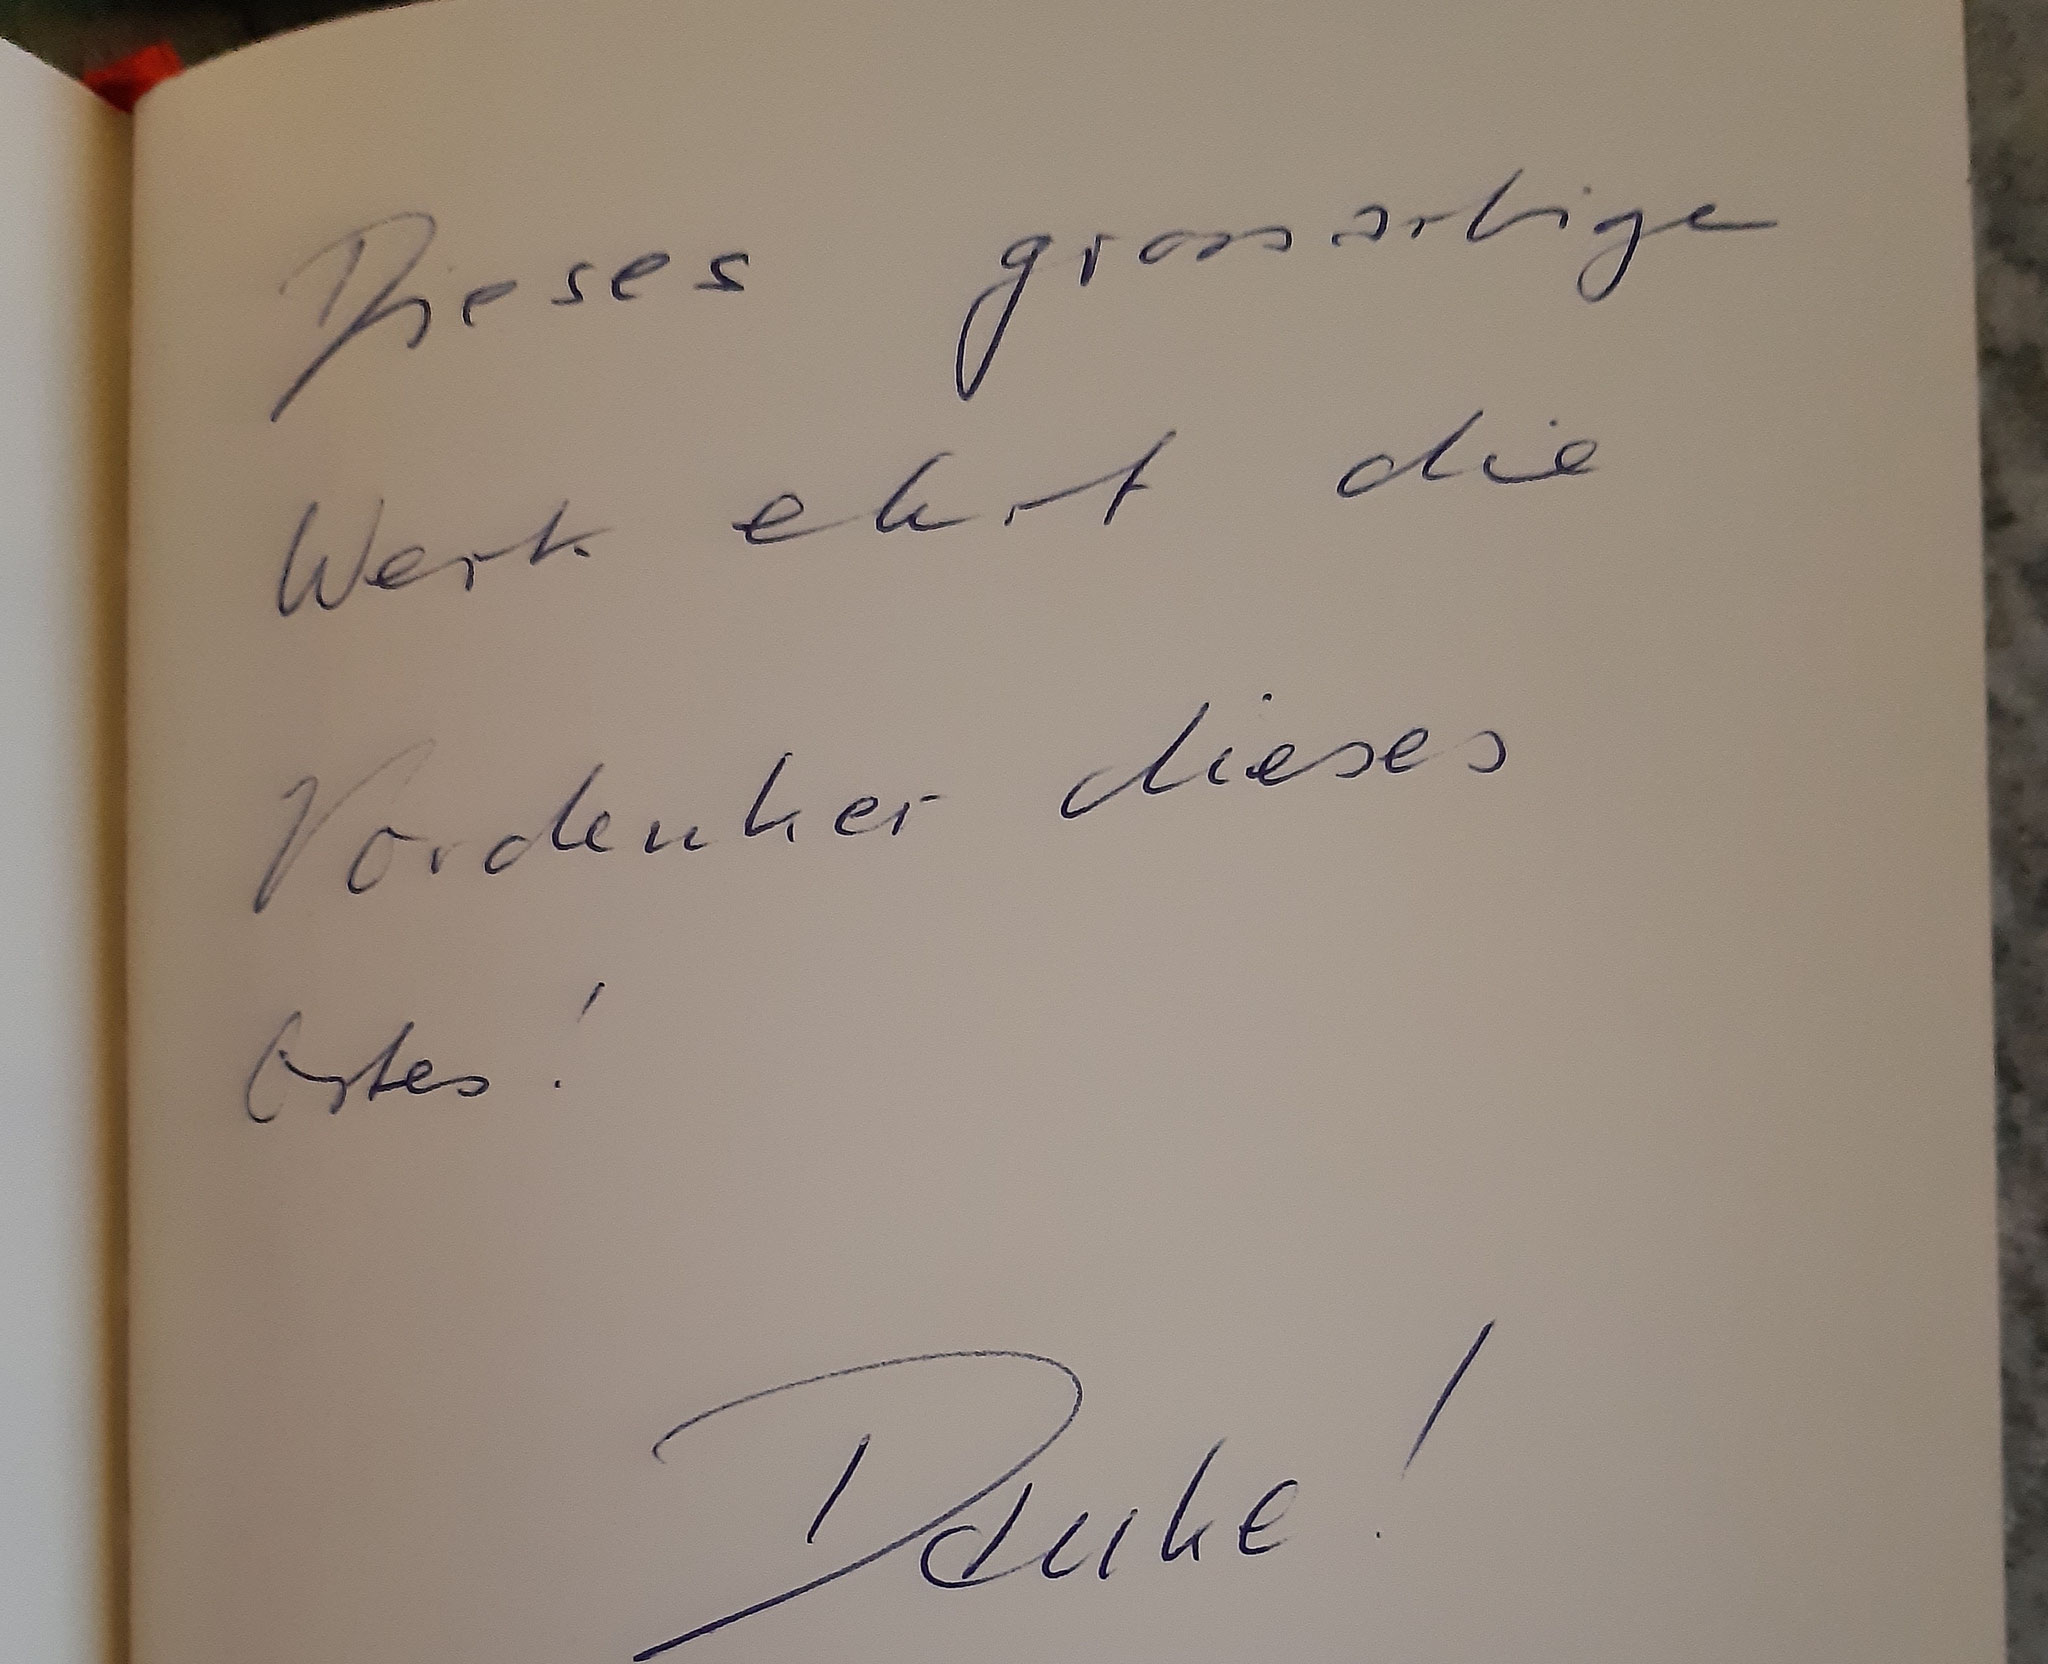 Dieses grossartige
Werk ehrt die
Vordenker dieses
Ortes!
Danke!